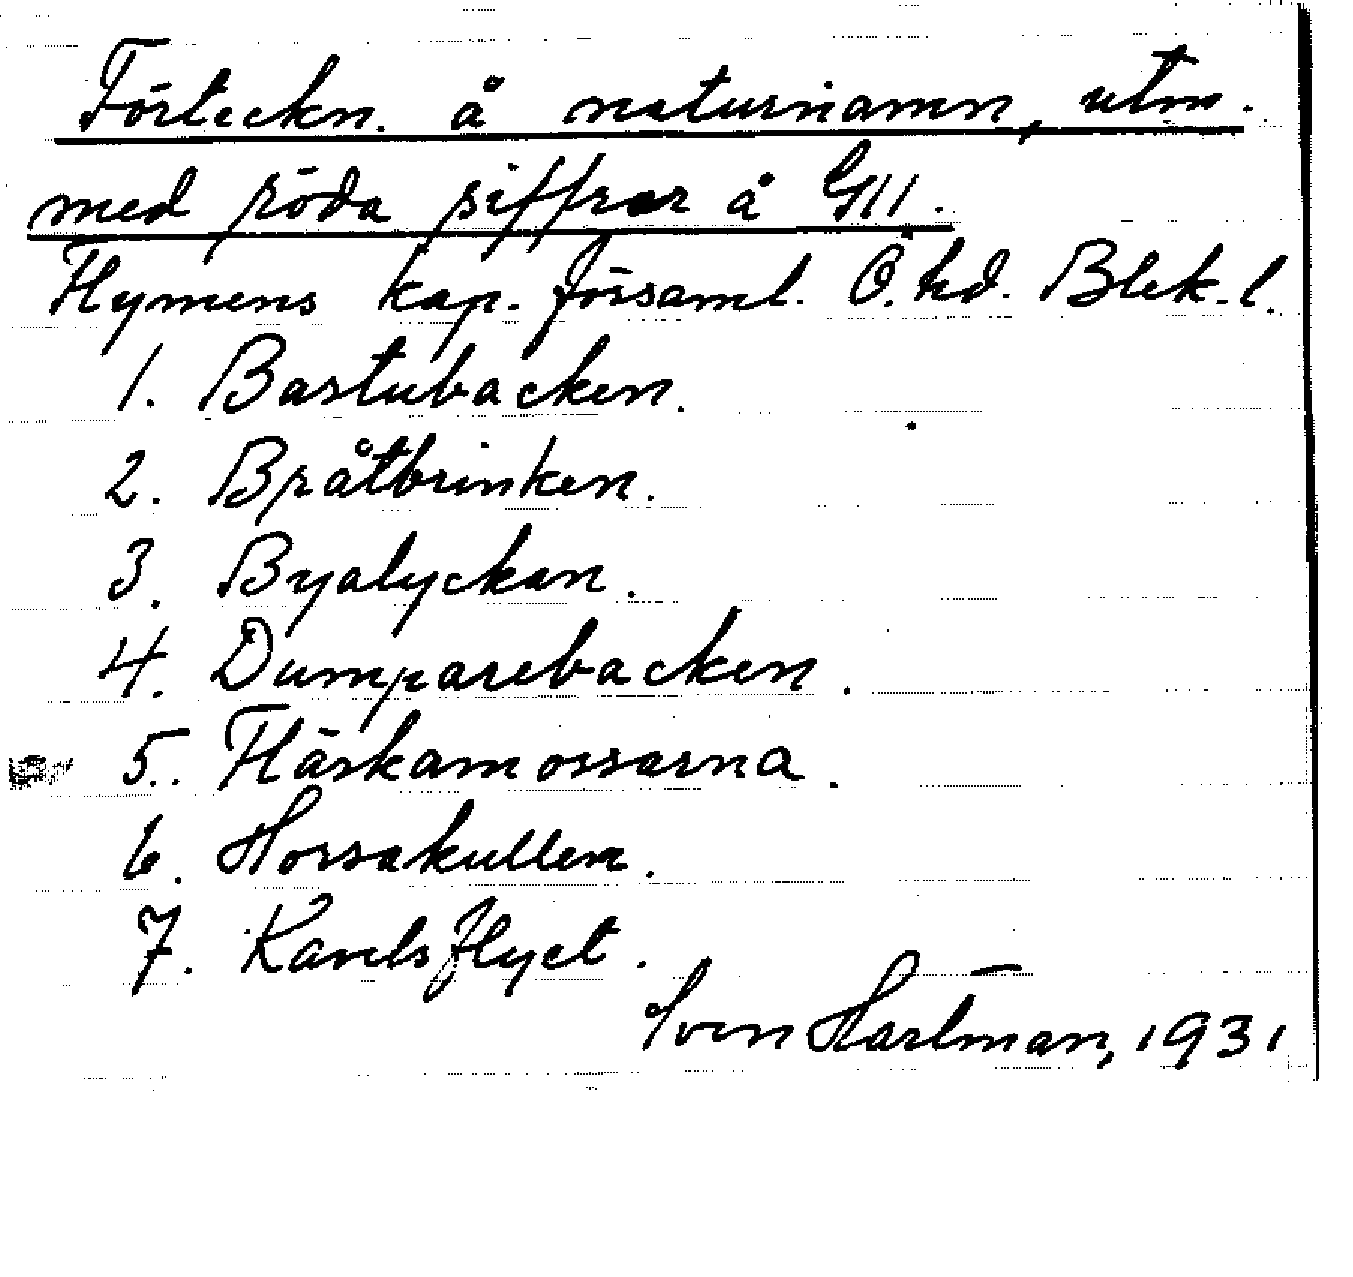 Förteckn. å naturnamn, utm.
med röda siffror å GII.
Flymens kap. församl. Ö. hd. Blek. l.
1. Bastubacken.
2. Bråtbrinken.
3. Byalyckan.
4. Dumparebacken.
5. Härkamossarna.
6. Horsakullen.
7. Karelsflyet.
Sven Hartman, 1931